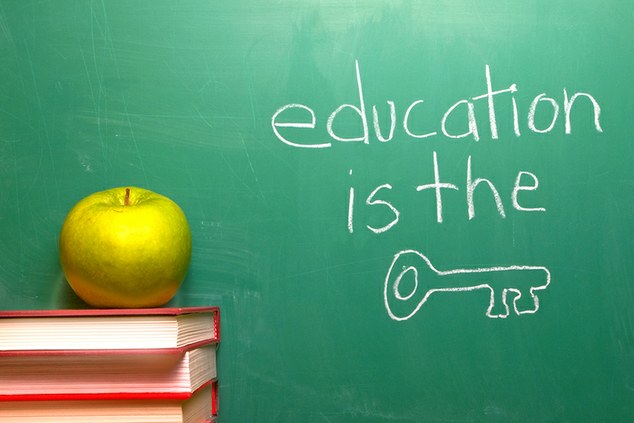 education
is the